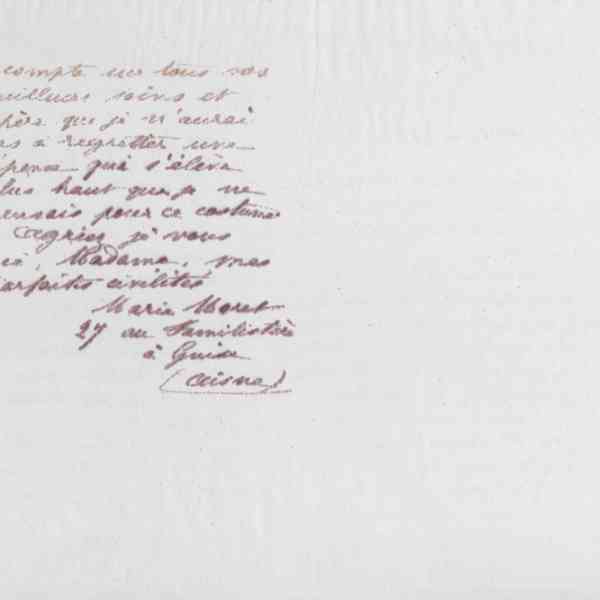 compte sur tous vos
eilleurs soins et
père que je n'aurai
as à regretter une
épense qui s'élève
lus haut que je ne
ensais pour ce costume
Agréez je vous
ie, Madame, mes
arfaites civilités
Marie Moret
27 au Familistère
à Guise
(Aisne)